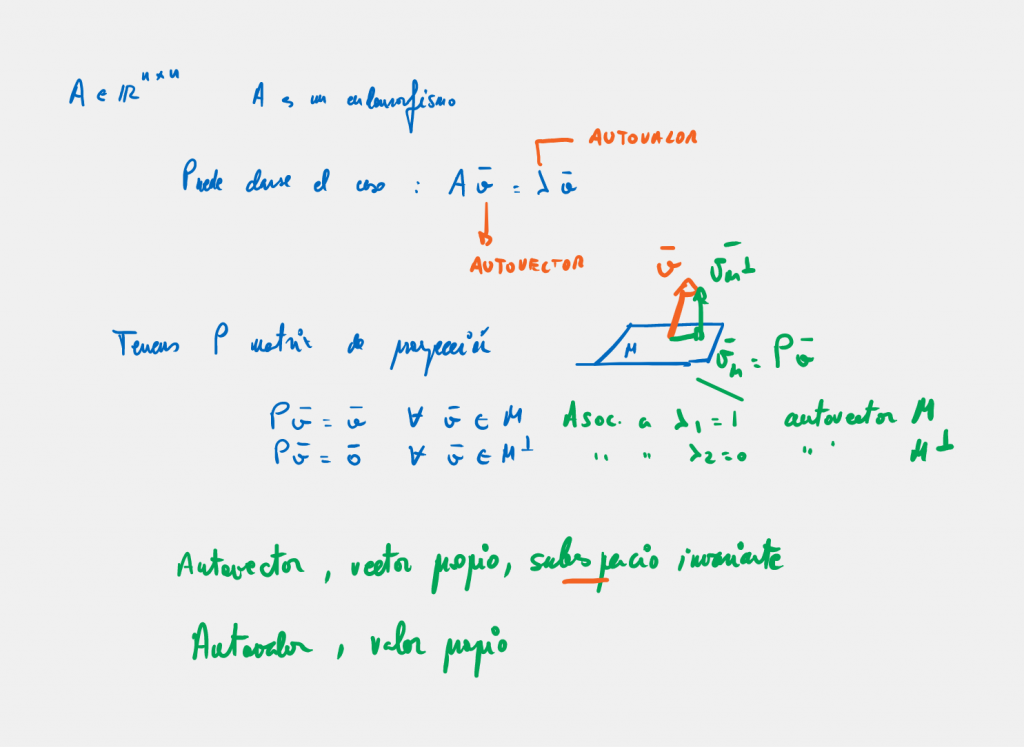 A ∈ ℝⁿˣⁿ A es un endomorfismo
AUTOVALOR
Puede darse el caso : A v̄ = λ v̄
AUTOVECTOR
v̄ v̄_M⊥
Tenemos P matriz de proyección
M v̄_M = P v̄
P v̄ = v̄ ∀ v̄ ∈ M Asoc. a λ₁ = 1 autovector M
P v̄ = 0̄ ∀ v̄ ∈ M⊥ " " λ₂ = 0 " M⊥
Autovector, vector propio, subespacio invariante
Autovalor, valor propio